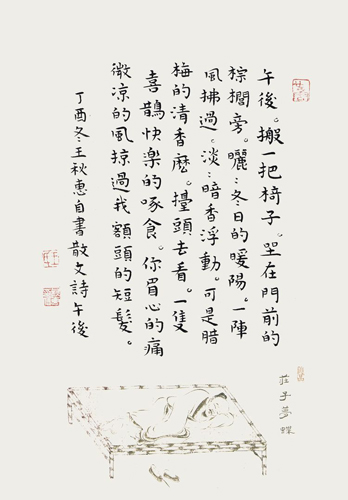 午後。搬一把椅子。坐在門前的
棕櫚旁。曬〻冬日的暖陽。一陣
風拂過。淡〻暗香浮動。可是腊
梅的清香麽。擡頭去看。一隻
喜鵲快樂的啄食。你眉心的痛
微凉的風掠過我額頭的短髮。
丁酉冬王秋惠自書散文詩午後
莊子夢蝶